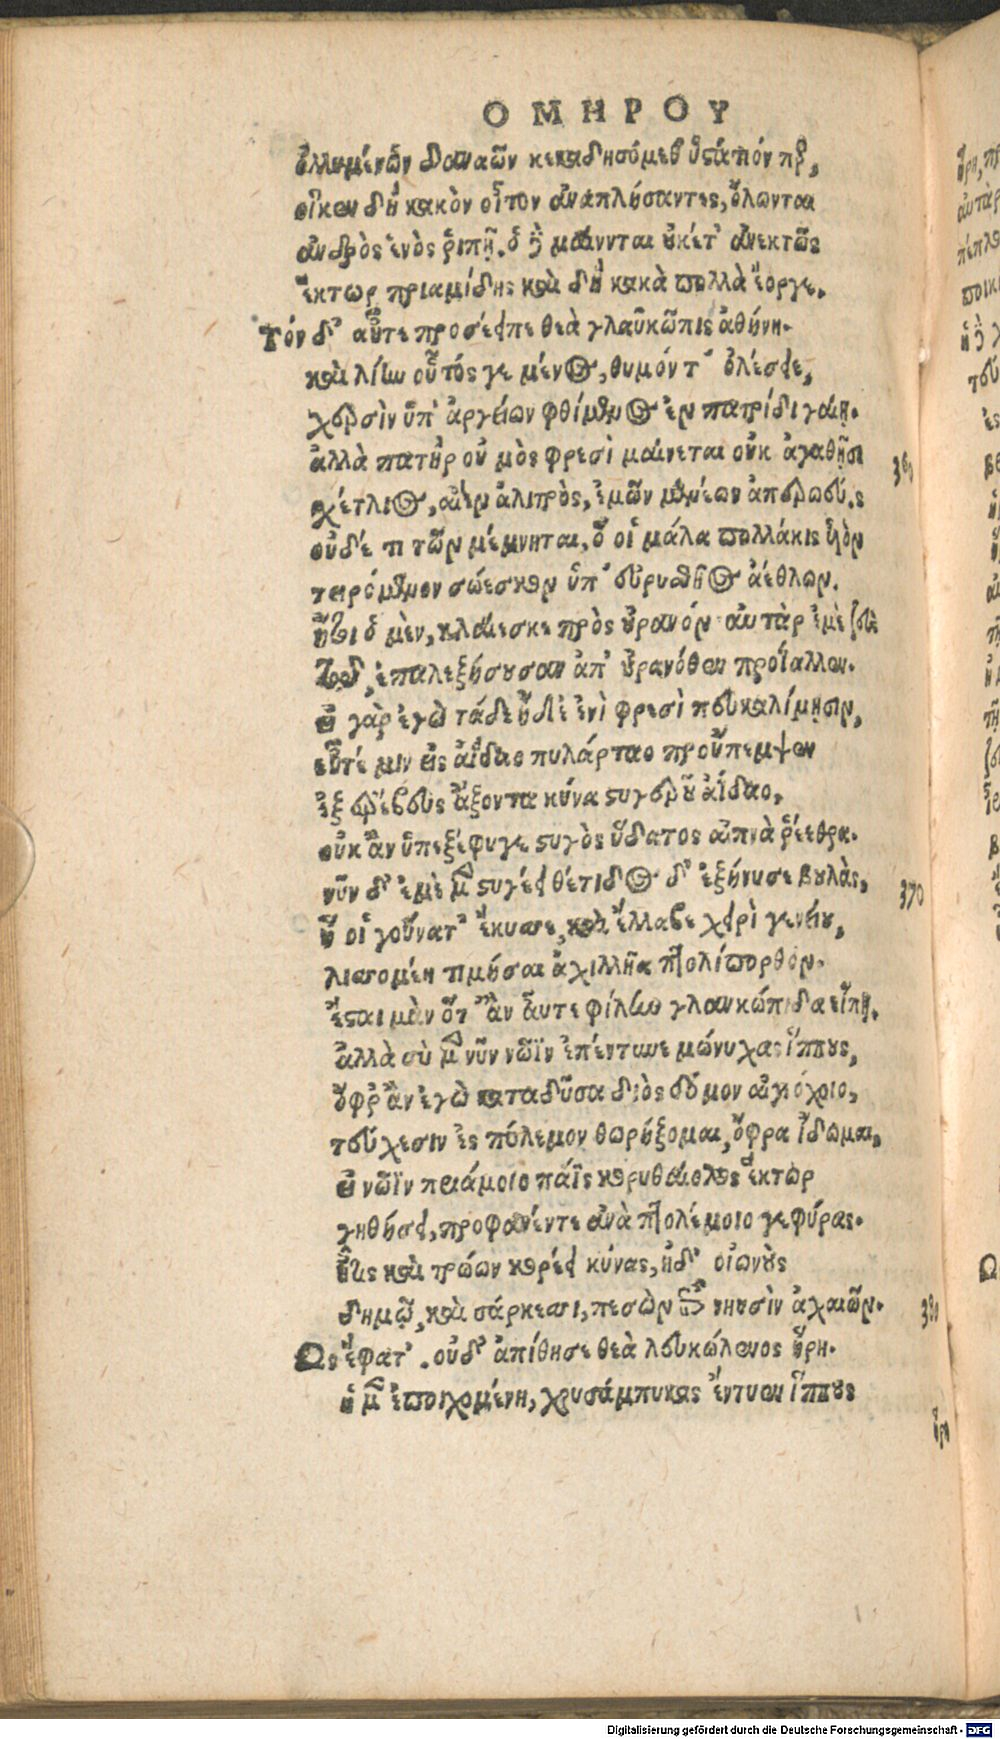 ΟΜΗΡΟΥ
ὀλλυμένων δαναῶν κεκαδησόμεθ' ὑστάτιόν περ,
οἵ κεν δὴ κακὸν οἶτον ἀναπλήσαντες, ὄλωνται
ἀνδρὸς ἑνὸς ῥιπῇ. ὁ δὲ μαίνεται οὐκέτ' ἀνεκτῶς
ἕκτωρ πριαμίδης καὶ δὴ κακὰ πολλὰ ἔοργε.
Τόν δ' αὖτε προσέειπε θεὰ γλαυκῶπις ἀθήνη.
καὶ λίην οὗτός γε μένος, θυμόν τ' ὀλέσειε,
χερσὶν ὑπ' ἀργείων φθίμενος ἐν πατρίδι γαίῃ.
ἀλλὰ πατὴρ οὑ μὸς φρεσὶ μαίνεται οὐκ ἀγαθῇσι 360
σχέτλιος, αἰὲν ἀλιτρὸς, ἐμῶν μενέων ἀπερωεύς
οὐδέ τι τῶν μέμνηται, ὅ οἱ μάλα πολλάκις υἱὸν
τειρόμενον σώεσκον ὑπ' εὐρυσθῆος ἀέθλων.
ἤτοι ὁ μὲν, κλαίεσκε πρὸς οὐρανόν· αὐτὰρ ἐμὲ ζεὺς
τῷ ἐπαλεξήσουσαν ἀπ' οὐρανόθεν προΐαλλεν.
εἰ γὰρ ἐγὼ τάδε ᾔδε' ἐνὶ φρεσὶ πευκαλίμῃσιν,
εὖτέ μιν εἰς ἀΐδαο πυλάρταο προὔπεμψεν
ἐξ ἐρέβευς ἄξοντα κύνα στυγεροῦ ἀΐδαο,
οὐκ ἂν ὑπεξέφυγε στυγὸς ὕδατος αἰπνὰ ῥέεθρα.
νῦν δ' ἐμὲ μὲν στυγέει θέτιδος δ' ἐξήνυσε βουλὰς, 370
ἥ οἱ γούνατ' ἔκυσσε, καὶ ἔλλαβε χειρὶ γενείου,
λισσομένη τιμῆσαι ἀχιλλῆα πτολίπορθον.
ἔσται μὰν ὅτ' ἂν αὖτε φίλην γλαυκώπιδα εἴπῃ.
ἀλλὰ σὺ μὲν νῦν νῶϊν ἐπέντυνε μώνυχας ἵππους,
ὄφρ' ἂν ἐγὼ καταδῦσα διὸς δόμον αἰγιόχοιο,
τεύχεσιν ἐς πόλεμον θωρήξομαι, ὄφρα ἴδωμαι,
εἰ νῶϊν πριάμοιο πάϊς κορυθαίολος ἕκτωρ
γηθήσει, προφανέντε ἀνὰ πτολέμοιο γεφύρας.
ἦ τις καὶ τρώων κορέει κύνας, ἠδ' οἰωνοὺς
δημῷ, καὶ σάρκεσσι, πεσὼν ἐπὶ νηυσὶν ἀχαιῶν. 380
Ως ἔφατ'. οὐδ' ἀπίθησε θεὰ λευκώλενος ἥρη.
ἡ μὲν ἐποιχομένη, χρυσάμπυκας ἔντυεν ἵππους
ἥρη
Digitalisierung gefördert durch die Deutsche Forschungsgemeinschaft - DFG